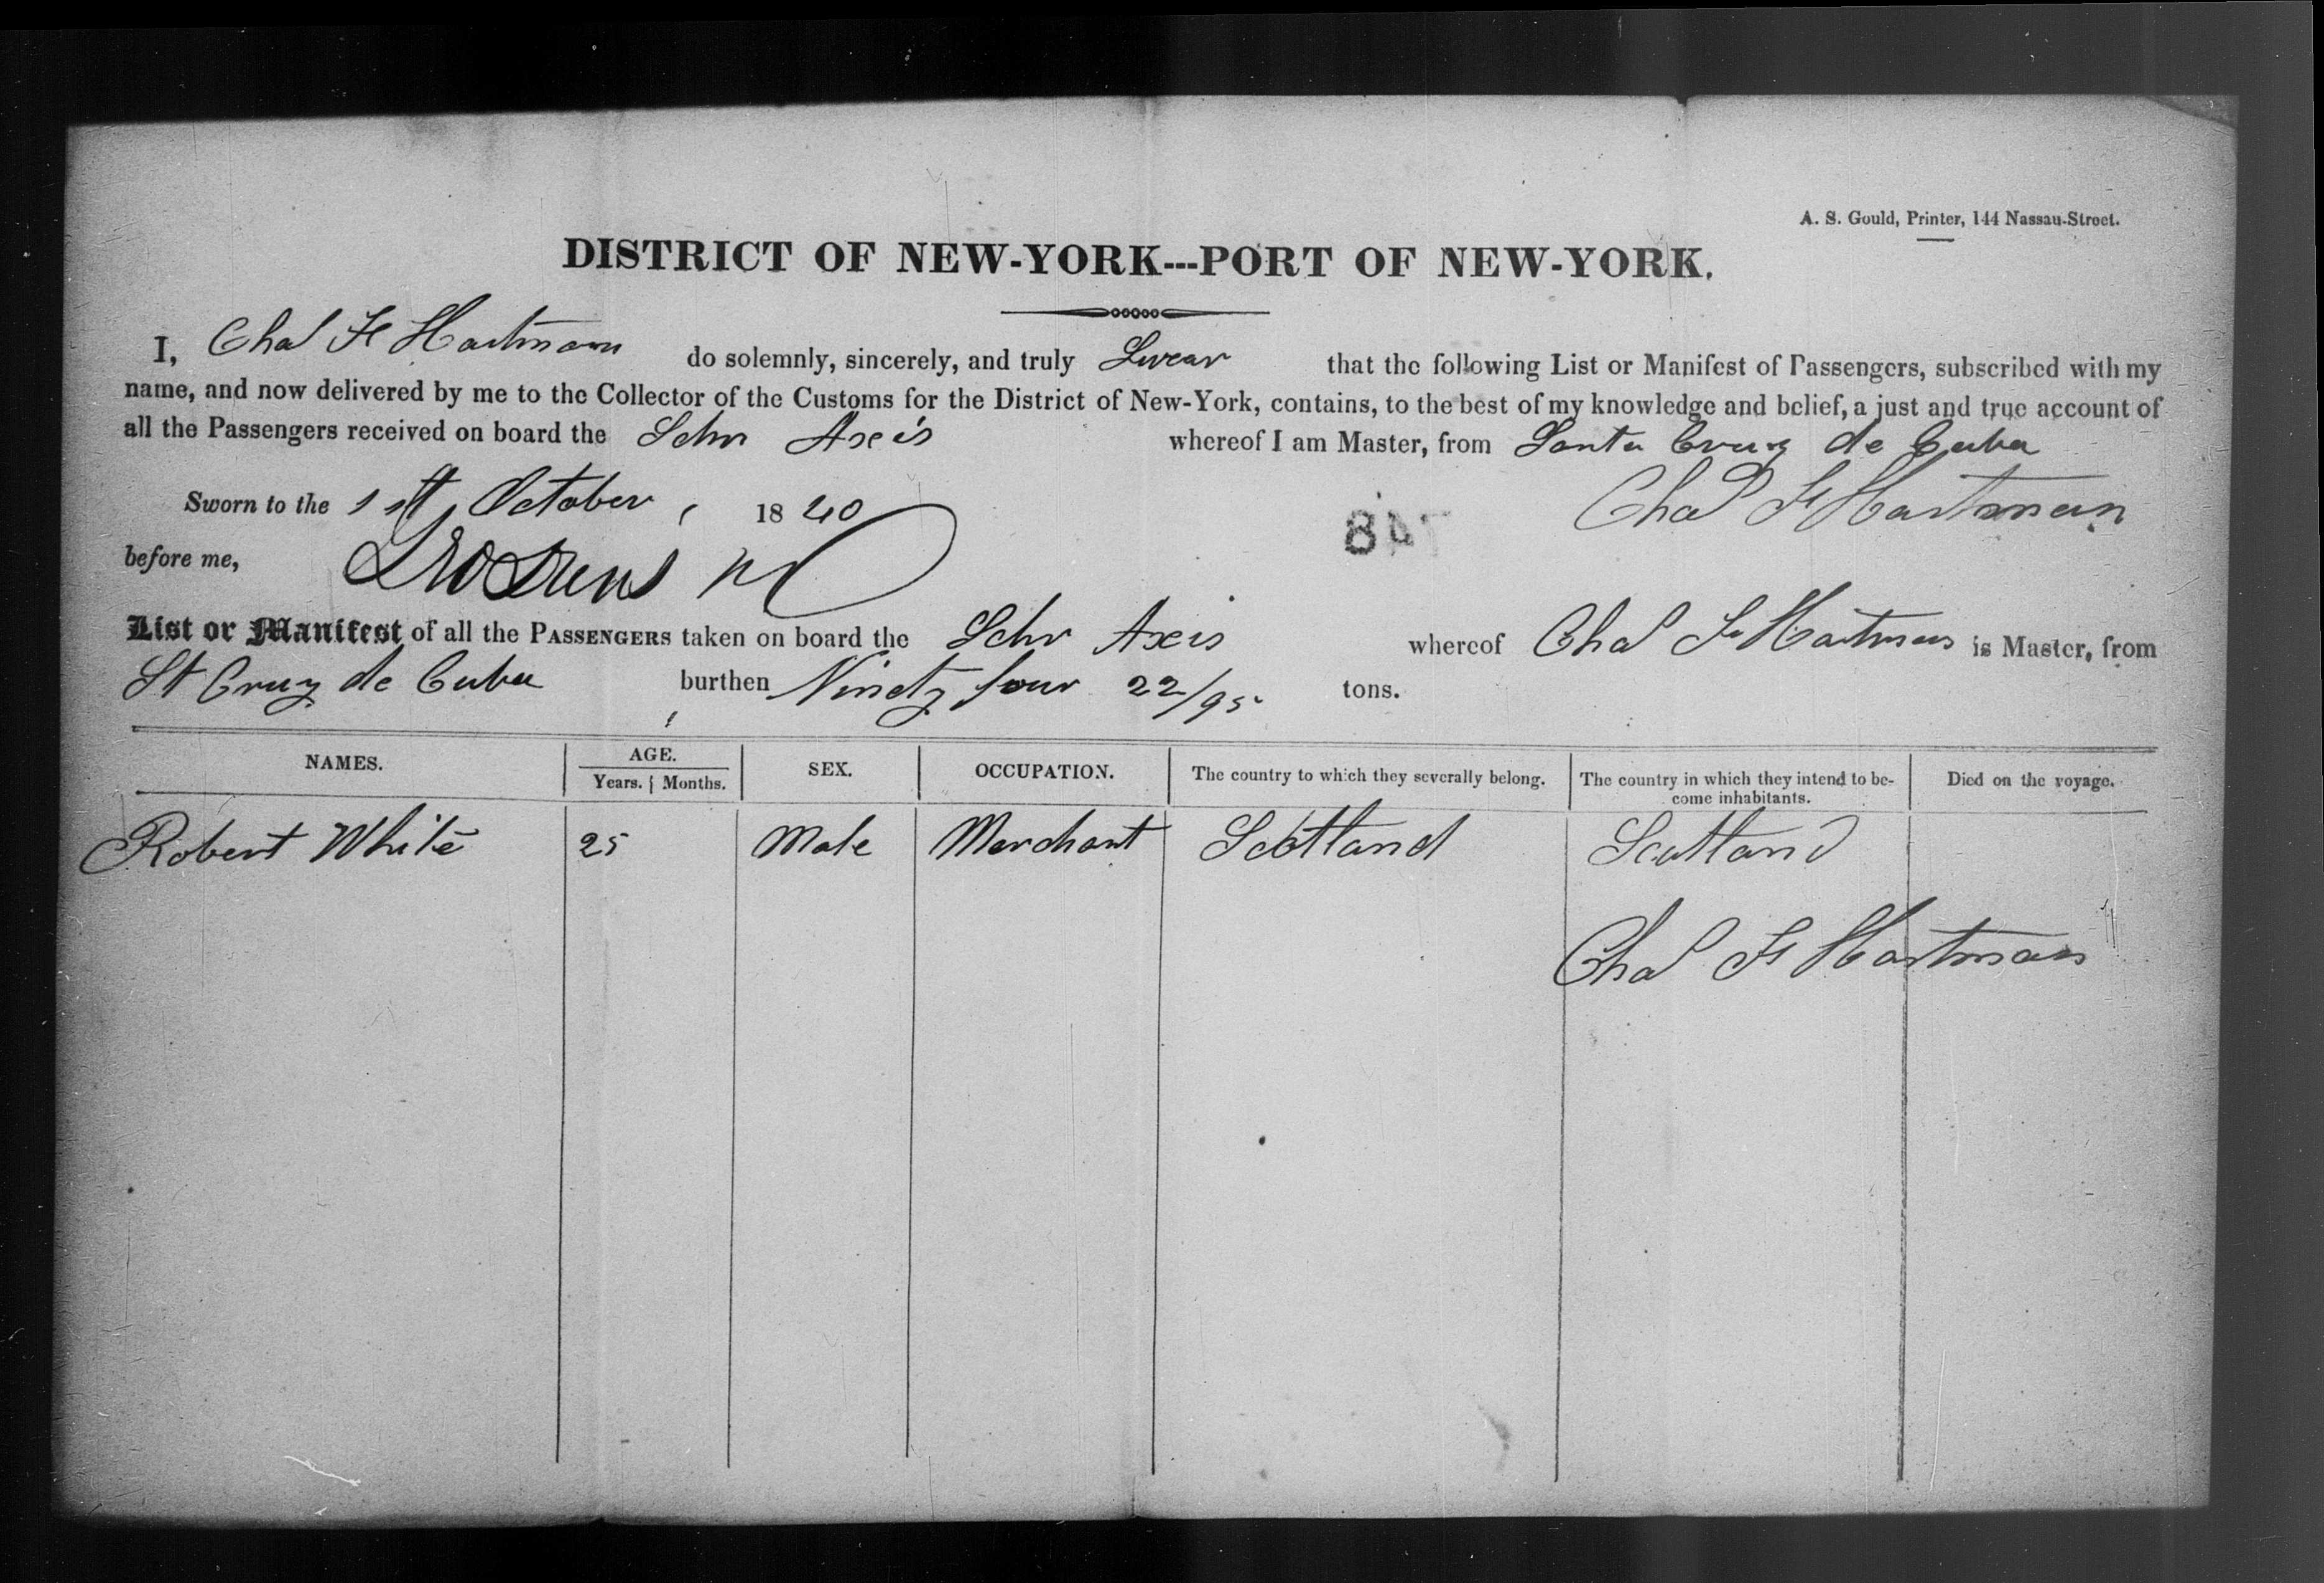 A. S. Gould, Printer, 144 Nassau-Street.
DISTRICT OF NEW-YORK---PORT OF NEW-YORK.
I, Chas F Hartmann do solemnly, sincerely, and truly Swear that the following List or Manifest of Passengers, subscribed with my
name, and now delivered by me to the Collector of the Customs for the District of New-York, contains, to the best of my knowledge and belief, a just and true account of
all the Passengers received on board the Schr Axeis whereof I am Master, from Santa Cruz de Cuba
Sworn to the 1st October, 1840 Chas F Hartmann
before me,
List or Manifest of all the PASSENGERS taken on board the Schr Axeis whereof Chas F Hartman is Master, from
St Cruz de Cuba burthen Ninety four 22/95 tons.
NAMES. AGE. SEX. OCCUPATION. The country to which they severally belong. The country in which they intend to be- Died on the voyage.
Years. Months. come inhabitants.
Robert White 25 Male Merchant Scotland Scotland
Chas F Hartman